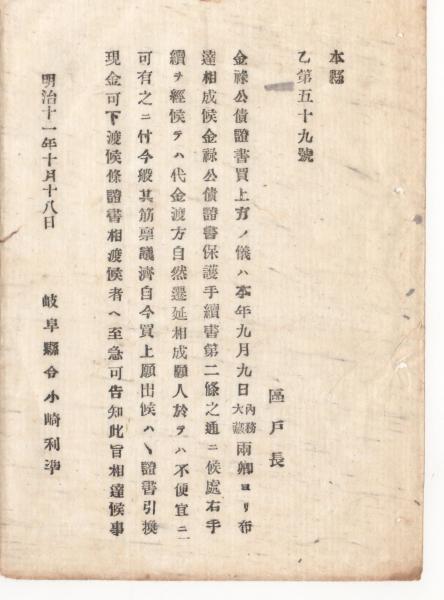 本縣
乙第五十九號
區戸長
金祿公債證書買上方ノ儀ハ本年九月九日內務大藏兩卿ヨリ布
達相成候金祿公債證書保護手續書第二條之通ニ候處右手
續ヲ經候テハ代金渡方自然遷延相成願人於テハ不便宜ニ
可有之ニ付今般其筋稟議濟自今買上願出候ハヽ證書引換
現金可下渡候條證書相渡候者ヘ至急可告知此旨相達候事
明治十一年十月十八日
岐阜縣令小崎利準